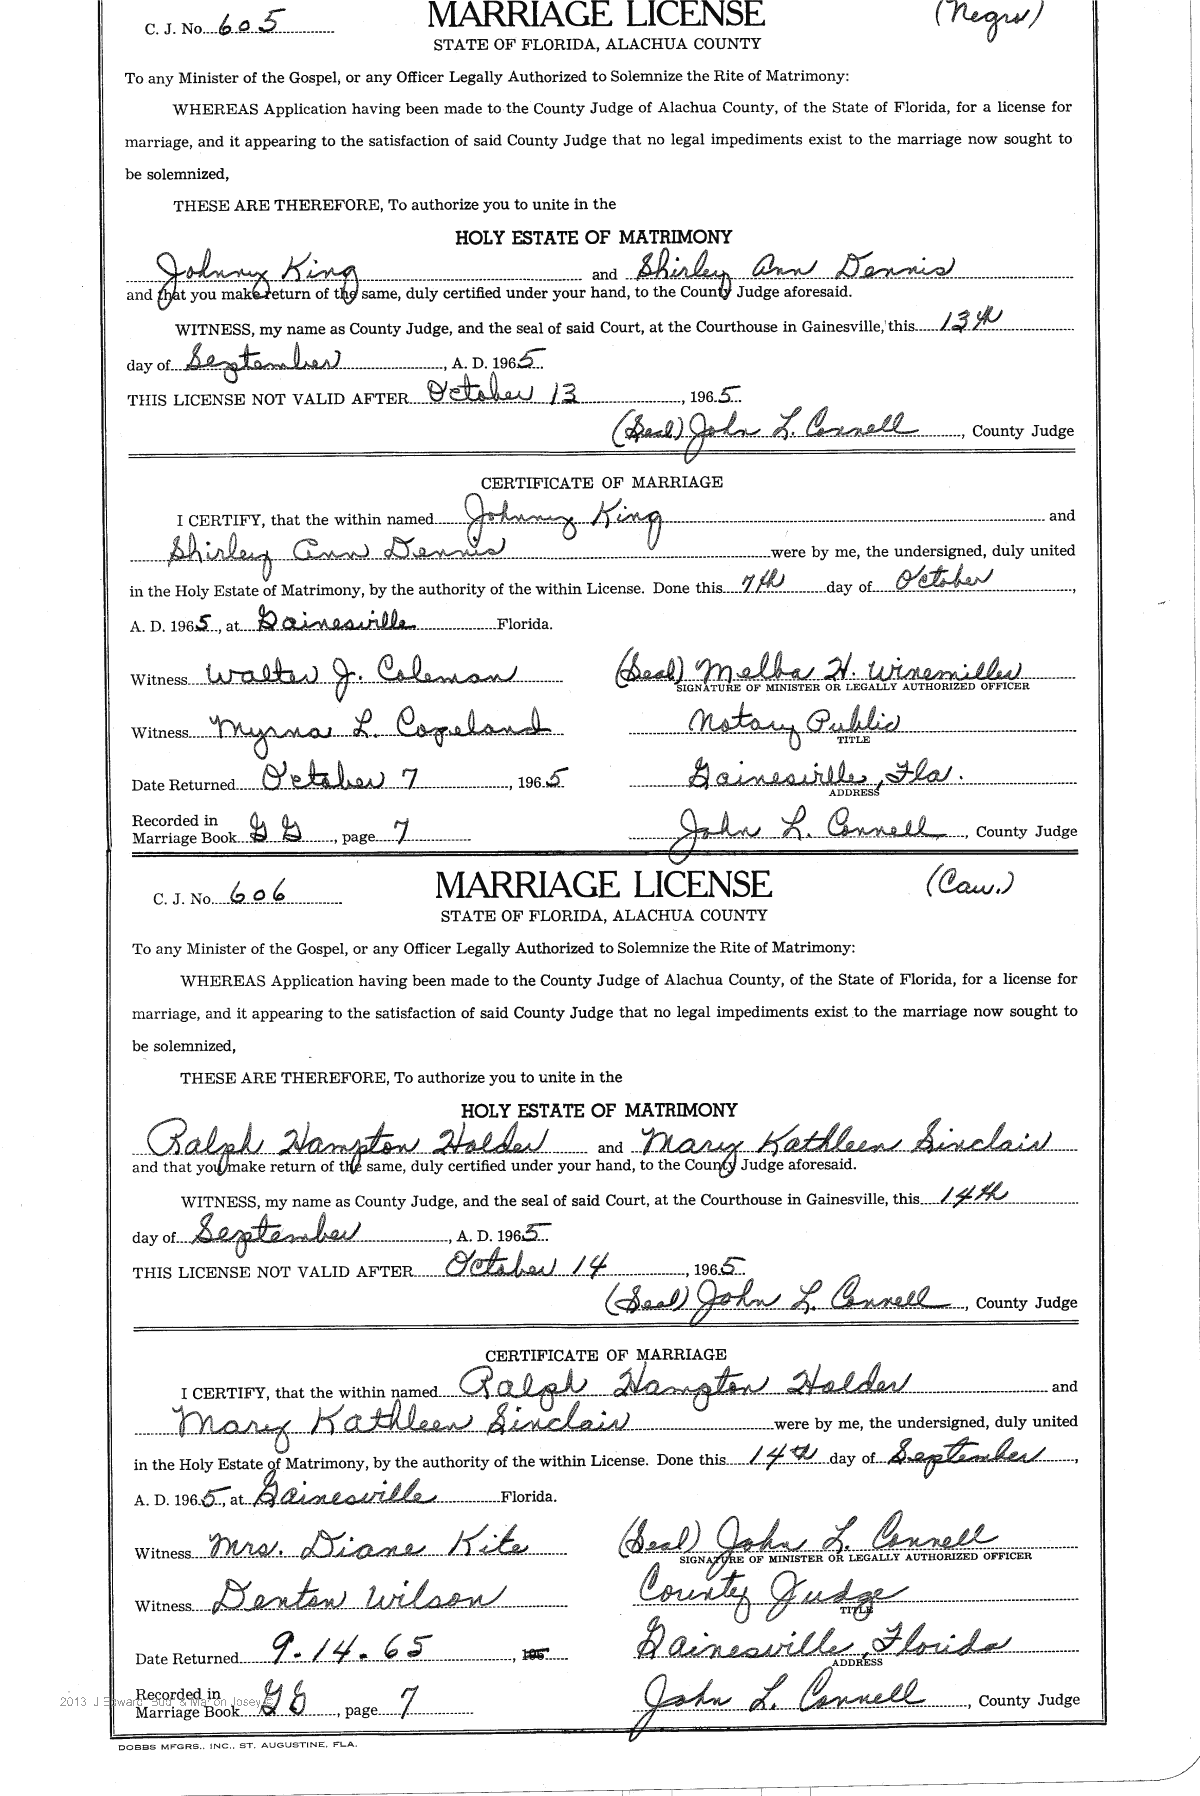 C. J. No. 605 MARRIAGE LICENSE (Negro)
STATE OF FLORIDA, ALACHUA COUNTY
To any Minister of the Gospel, or any Officer Legally Authorized to Solemnize the Rite of Matrimony:
WHEREAS Application having been made to the County Judge of Alachua County, of the State of Florida, for a license for
marriage, and it appearing to the satisfaction of said County Judge that no legal impediments exist to the marriage now sought to
be solemnized,
THESE ARE THEREFORE, To authorize you to unite in the
HOLY ESTATE OF MATRIMONY
Johnny King and Shirley Ann Dennis
and that you make return of the same, duly certified under your hand, to the County Judge aforesaid.
WITNESS, my name as County Judge, and the seal of said Court, at the Courthouse in Gainesville, this 13th
day of September, A. D. 1965
THIS LICENSE NOT VALID AFTER October 13, 1965
(Seal) John L. Connell, County Judge
CERTIFICATE OF MARRIAGE
I CERTIFY, that the within named Johnny King and
Shirley Ann Dennis were by me, the undersigned, duly united
in the Holy Estate of Matrimony, by the authority of the within License. Done this 7th day of October,
A. D. 1965, at Gainesville Florida.
Witness Walter J. Coleman (Seal) Melba H. Winemiller
SIGNATURE OF MINISTER OR LEGALLY AUTHORIZED OFFICER
Witness Myrna L. Copeland Notary Public
TITLE
Date Returned October 7, 1965 Gainesville, Fla.
ADDRESS
Recorded in
Marriage Book GG, page 7 John L. Connell, County Judge
C. J. No. 606 MARRIAGE LICENSE (Cau.)
STATE OF FLORIDA, ALACHUA COUNTY
To any Minister of the Gospel, or any Officer Legally Authorized to Solemnize the Rite of Matrimony:
WHEREAS Application having been made to the County Judge of Alachua County, of the State of Florida, for a license for
marriage, and it appearing to the satisfaction of said County Judge that no legal impediments exist to the marriage now sought to
be solemnized,
THESE ARE THEREFORE, To authorize you to unite in the
HOLY ESTATE OF MATRIMONY
Ralph Hampton Holder and Mary Kathleen Sinclair
and that you make return of the same, duly certified under your hand, to the County Judge aforesaid.
WITNESS, my name as County Judge, and the seal of said Court, at the Courthouse in Gainesville, this 14th
day of September, A. D. 1965
THIS LICENSE NOT VALID AFTER October 14, 1965
(Seal) John L. Connell, County Judge
CERTIFICATE OF MARRIAGE
I CERTIFY, that the within named Ralph Hampton Holder and
Mary Kathleen Sinclair were by me, the undersigned, duly united
in the Holy Estate of Matrimony, by the authority of the within License. Done this 14th day of September,
A. D. 1965, at Gainesville Florida.
Witness Mrs. Diane Kite (Seal) John L. Connell
SIGNATURE OF MINISTER OR LEGALLY AUTHORIZED OFFICER
Witness Denton Wilson County Judge
TITLE
Date Returned 9.14.65, 196 Gainesville, Florida
ADDRESS
Recorded in
Marriage Book GG, page 7 John L. Connell, County Judge
2013 J Edward
DOBBS MFGRS., INC., ST. AUGUSTINE, FLA.